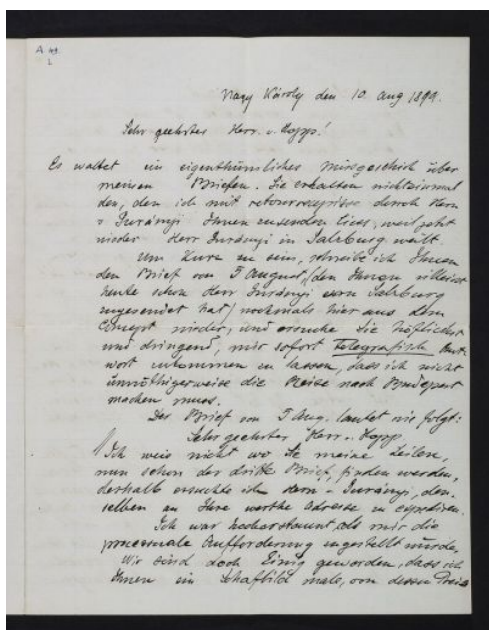 A 49.
2
Nagy Károly den 10. Aug 1899.
Sehr geehrter Herr. v. Hopp!
Es waltet ein eigenthümliches Missgeschick über
meinen Briefen. Sie erhalten nichteinmal
den, den ich mit retourrecepisse durch Herrn
v Gurányi Ihnen zusenden liess, weil jetzt
wieder Herr Gurányi in Salzburg weilt.
Um Kurz zu sein, schreibe ich Ihnen
den Brief von 5 August, (den Ihnen villeicht
heute schon Herr Gurányi von Salzburg
zugesendet hat) nochmals hier aus dem
Concept nieder, und ersuche Sie höflichst
und dringend, mir sofort Telegrafisch Ant-
wort zukommen zu lassen, dass ich nicht
unnöthigerweise die Reise nach Budapest
machen muss.
Der Brief von 5 Aug. lautet wie folgt:
Sehr geehrter Herr v. Hopp
Ich weis nicht wo Sie meine Zeilen,
nun schon der dritte Brief, finden werden,
desshalb ersuchte ich Herrn v Gurányi, den-
selben an Ihre werthe Adresse zu expediren.
Ich war hocherstaunt, als mir die
processuale Aufforderung zugestellt wurde,
Wir sind doch Einig geworden, dass ich
Ihnen ein Schafbild male, von dessen Preis